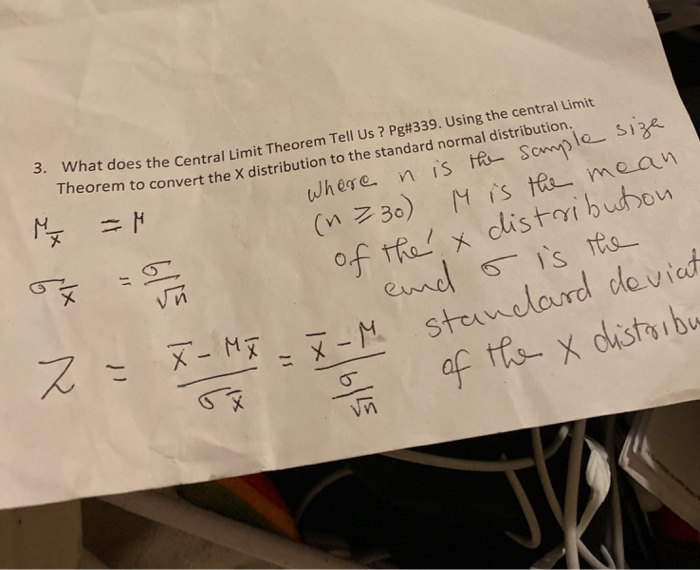 3. What does the Central Limit Theorem Tell Us ? Pg#339. Using the central Limit
Theorem to convert the X distribution to the standard normal distribution.
where n is the sample size
(n ≥ 30) μ is the mean
of the x distribution
end σ is the
standard deviat
of the x distribu
μx̄ = μ
σx̄ = σ/√n
Z = x̄ - μx̄ / σx̄ = x̄ - μ / σ/√n